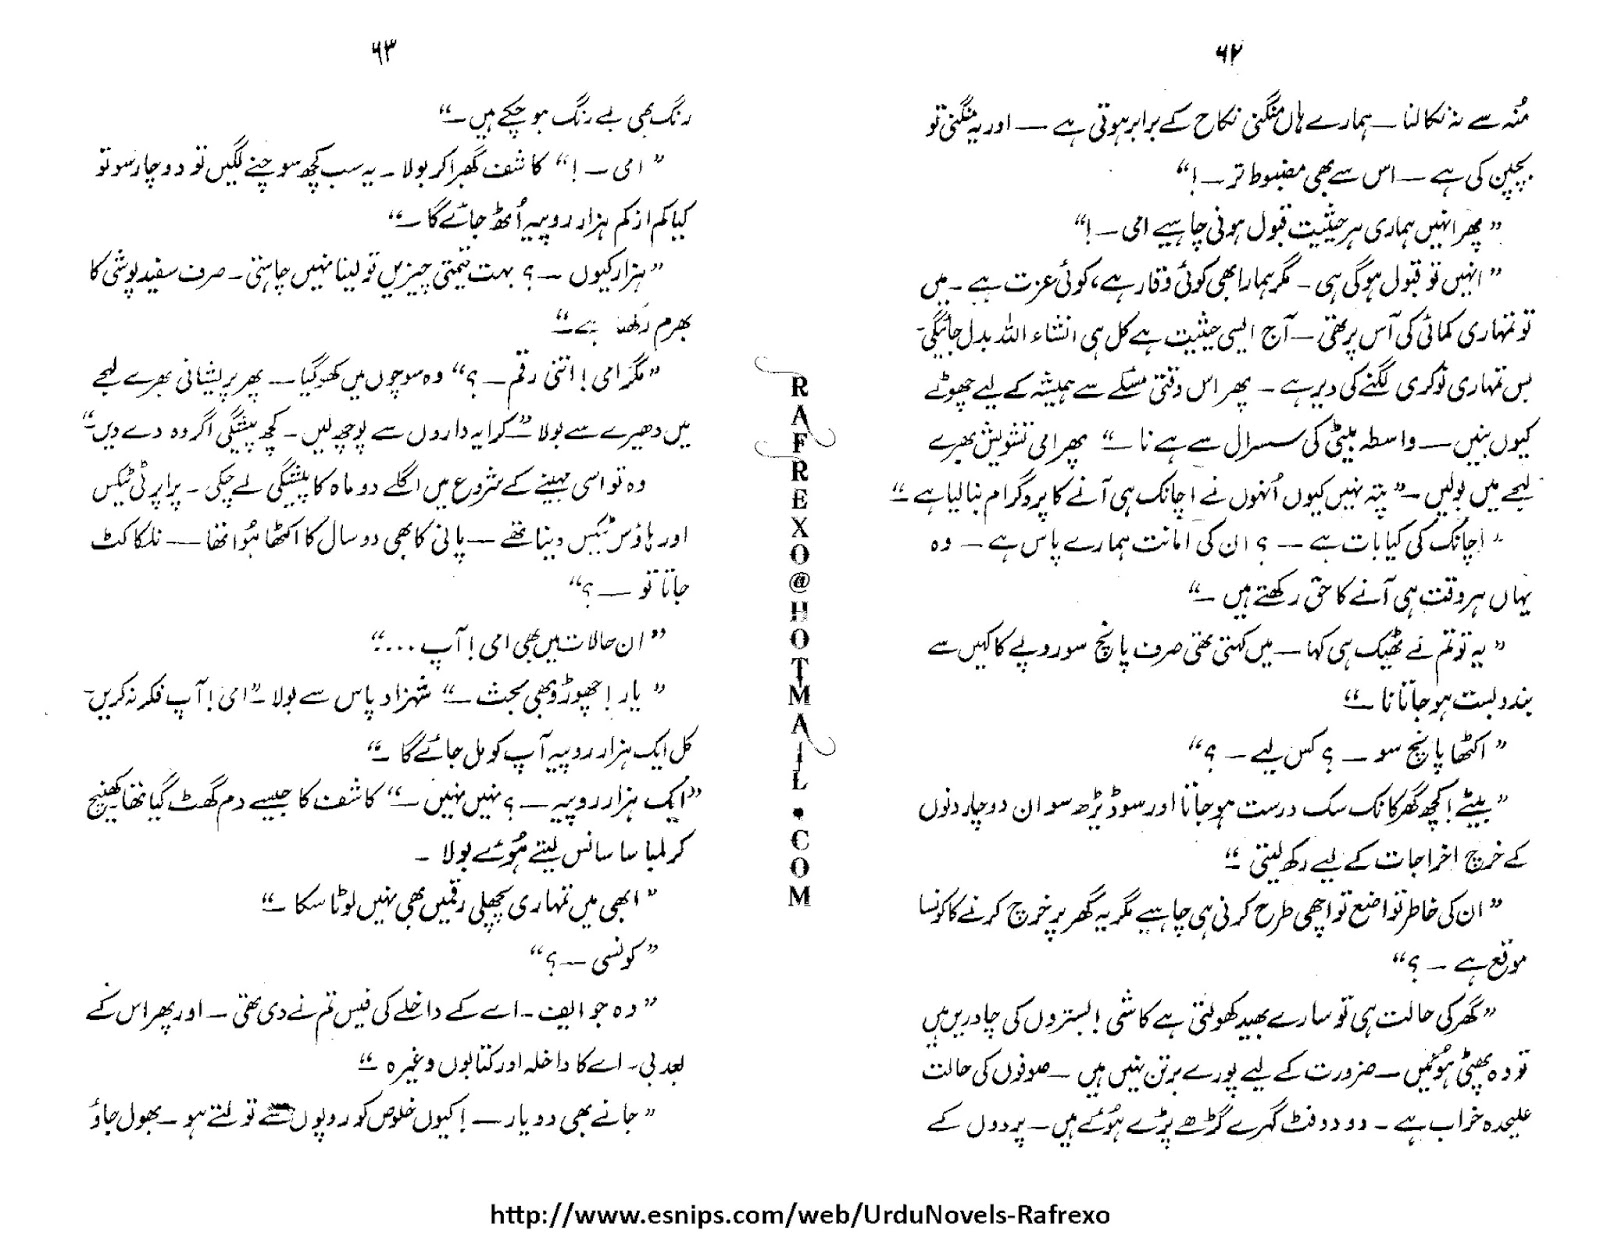 ۶۲
مُنہ سے نہ نکالنا — ہمارے ہاں منگنی نکاح کے برابر ہوتی ہے — اور یہ منگنی تو
بچپن کی ہے — اس سے بھی مضبوط تر — !“
”پھر انہیں ہماری ہر حیثیت قبول ہونی چاہیے امی — !“
”انہیں تو قبول ہوگی ہی ۔ مگر ہمارا بھی کوئی وقار ہے، کوئی عزت ہے ۔ میں
تو تمہاری کمائی کی آس پر تھی — آج ایسی حیثیت ہے کل ہی انشاء اللہ بدل جائیگی۔
بس تمہاری نوکری لگنے کی دیر ہے ۔ پھر اس وقتی مسئلے سے ہمیشہ کے لیے چھوٹے
کیوں بنیں — واسطہ بیٹی کی سسرال سے ہے نا —“ پھر امی تشویش بھرے
لہجے میں بولیں —” پتہ نہیں کیوں اُنہوں نے اچانک ہی آنے کا پروگرام بنا لیا ہے —“
” اچانک کی کیا بات ہے — ؟ ان کی امانت ہمارے پاس ہے — وہ
یہاں ہر وقت ہی آنے کا حق رکھتے ہیں —“
” یہ تو تم نے ٹھیک ہی کہا — میں کہتی تھی صرف پانچ سو روپے کا کہیں سے
بندوبست ہو جاتا نا —“
” اکٹھا پانچ سو — ؟ کس لیے — ؟“
”بیٹے ! کچھ گھر کا نک سک درست ہو جاتا اور سو ڈیڑھ سو ان دو چار دنوں
کے خرچ اخراجات کے لیے رکھ لیتی —“
” ان کی خاطر تواضع تو اچھی طرح کرنی ہی چاہیے مگر یہ گھر پر خرچ کرنے کا کونسا
موقع ہے — ؟“
”گھر کی حالت ہی تو سارے بھید کھولتی ہے کاشی ! بستروں کی چادریں ہیں
تو وہ پھٹی ہوئیں — ضرورت کے لیے پورے برتن نہیں ہیں — صوفوں کی حالت
علیحدہ خراب ہے ۔ دو دو فٹ گہرے گڑھے پڑے ہوئے ہیں — پردوں کے
۶۳
رنگ بھی بے رنگ ہو چکے ہیں —“
” امی — !“ کاشف گھبرا کر بولا ۔ یہ سب کچھ سوچنے لگیں تو دو چار سو تو
کیا کم از کم ہزار روپیہ اُٹھ جائے گا —“
”ہزار کیوں — ؟ بہت قیمتی چیزیں تو لینا نہیں چاہتی ۔ صرف سفید پوشی کا
بھرم رکھنا ہے —“
”مگر امی ! اتنی رقم — ؟“ وہ سوچوں میں کھو گیا — پھر پریشانی بھرے لہجے
میں دھیرے سے بولا ” کرایہ داروں سے پوچھ لیں ۔ کچھ پیشگی اگر وہ دے دیں“
وہ تو اسی مہینے کے شروع میں اگلے دو ماہ کا پیشگی لے چکی ۔ پراپرٹی ٹیکس
اور ہاؤس ٹیکس دینا تھے — پانی کا بھی دو سال کا اکٹھا ہُوا تھا — نلکا کٹ
جاتا تو — ؟“
” ان حالات میں بھی امی ! آپ ....“
” یار ! چھوڑو بھی بحث —“ شہزاد پاس سے بولا —” امی ! آپ فکر نہ کریں۔
کل ایک ہزار روپیہ آپ کو مل جائے گا —“
”ایک ہزار روپیہ — ؟ نہیں نہیں —“ کاشف کا جیسے دم گھٹ گیا تھا کھینچ
کر لمبا سا سانس لیتے ہُوئے بولا ۔
” ابھی میں تمہاری پچھلی رقمیں بھی نہیں لوٹا سکا —“
”کونسی — ؟“
”وہ جو ایف ۔ اے کے داخلے کی فیس تم نے دی تھی — اور پھر اس کے
بعد بی ۔ اے کا داخلہ اور کتابوں وغیرہ —“
” جانے بھی دو یار — ! کیوں خلوص کو روپوں سے تولتے ہو ۔ بھول جاؤ
RAFREXO@HOTMAIL.COM
http://www.esnips.com/web/UrduNovels-Rafrexo